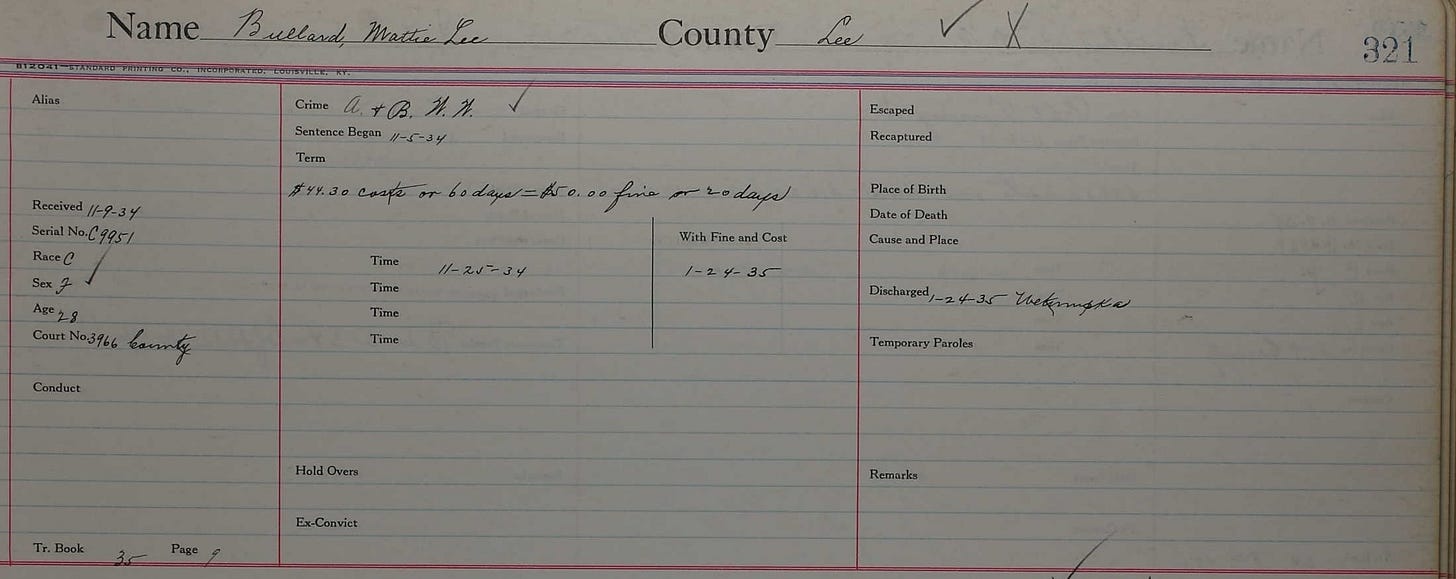 Name Bullard, Mattie Lee County Lee ✓ X 321
B12041—STANDARD PRINTING CO., INCORPORATED, LOUISVILLE, KY.
Alias
Received 11-9-34
Serial No. C9951
Race C
Sex F ✓
Age 28
Court No. 3966 County
Conduct
Tr. Book 35 Page 9
Crime A. + B. W. W. ✓
Sentence Began 11-5-34
Term
$44.30 costs or 60 days = $50.00 fine or 20 days
With Fine and Cost
Time 11-25-34 1-24-35
Time
Time
Time
Hold Overs
Ex-Convict
Escaped
Recaptured
Place of Birth
Date of Death
Cause and Place
Discharged 1-24-35 Wetumpka
Temporary Paroles
Remarks